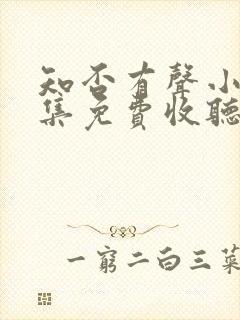 知否有聲小
集免費收聽
一窮二白三菜